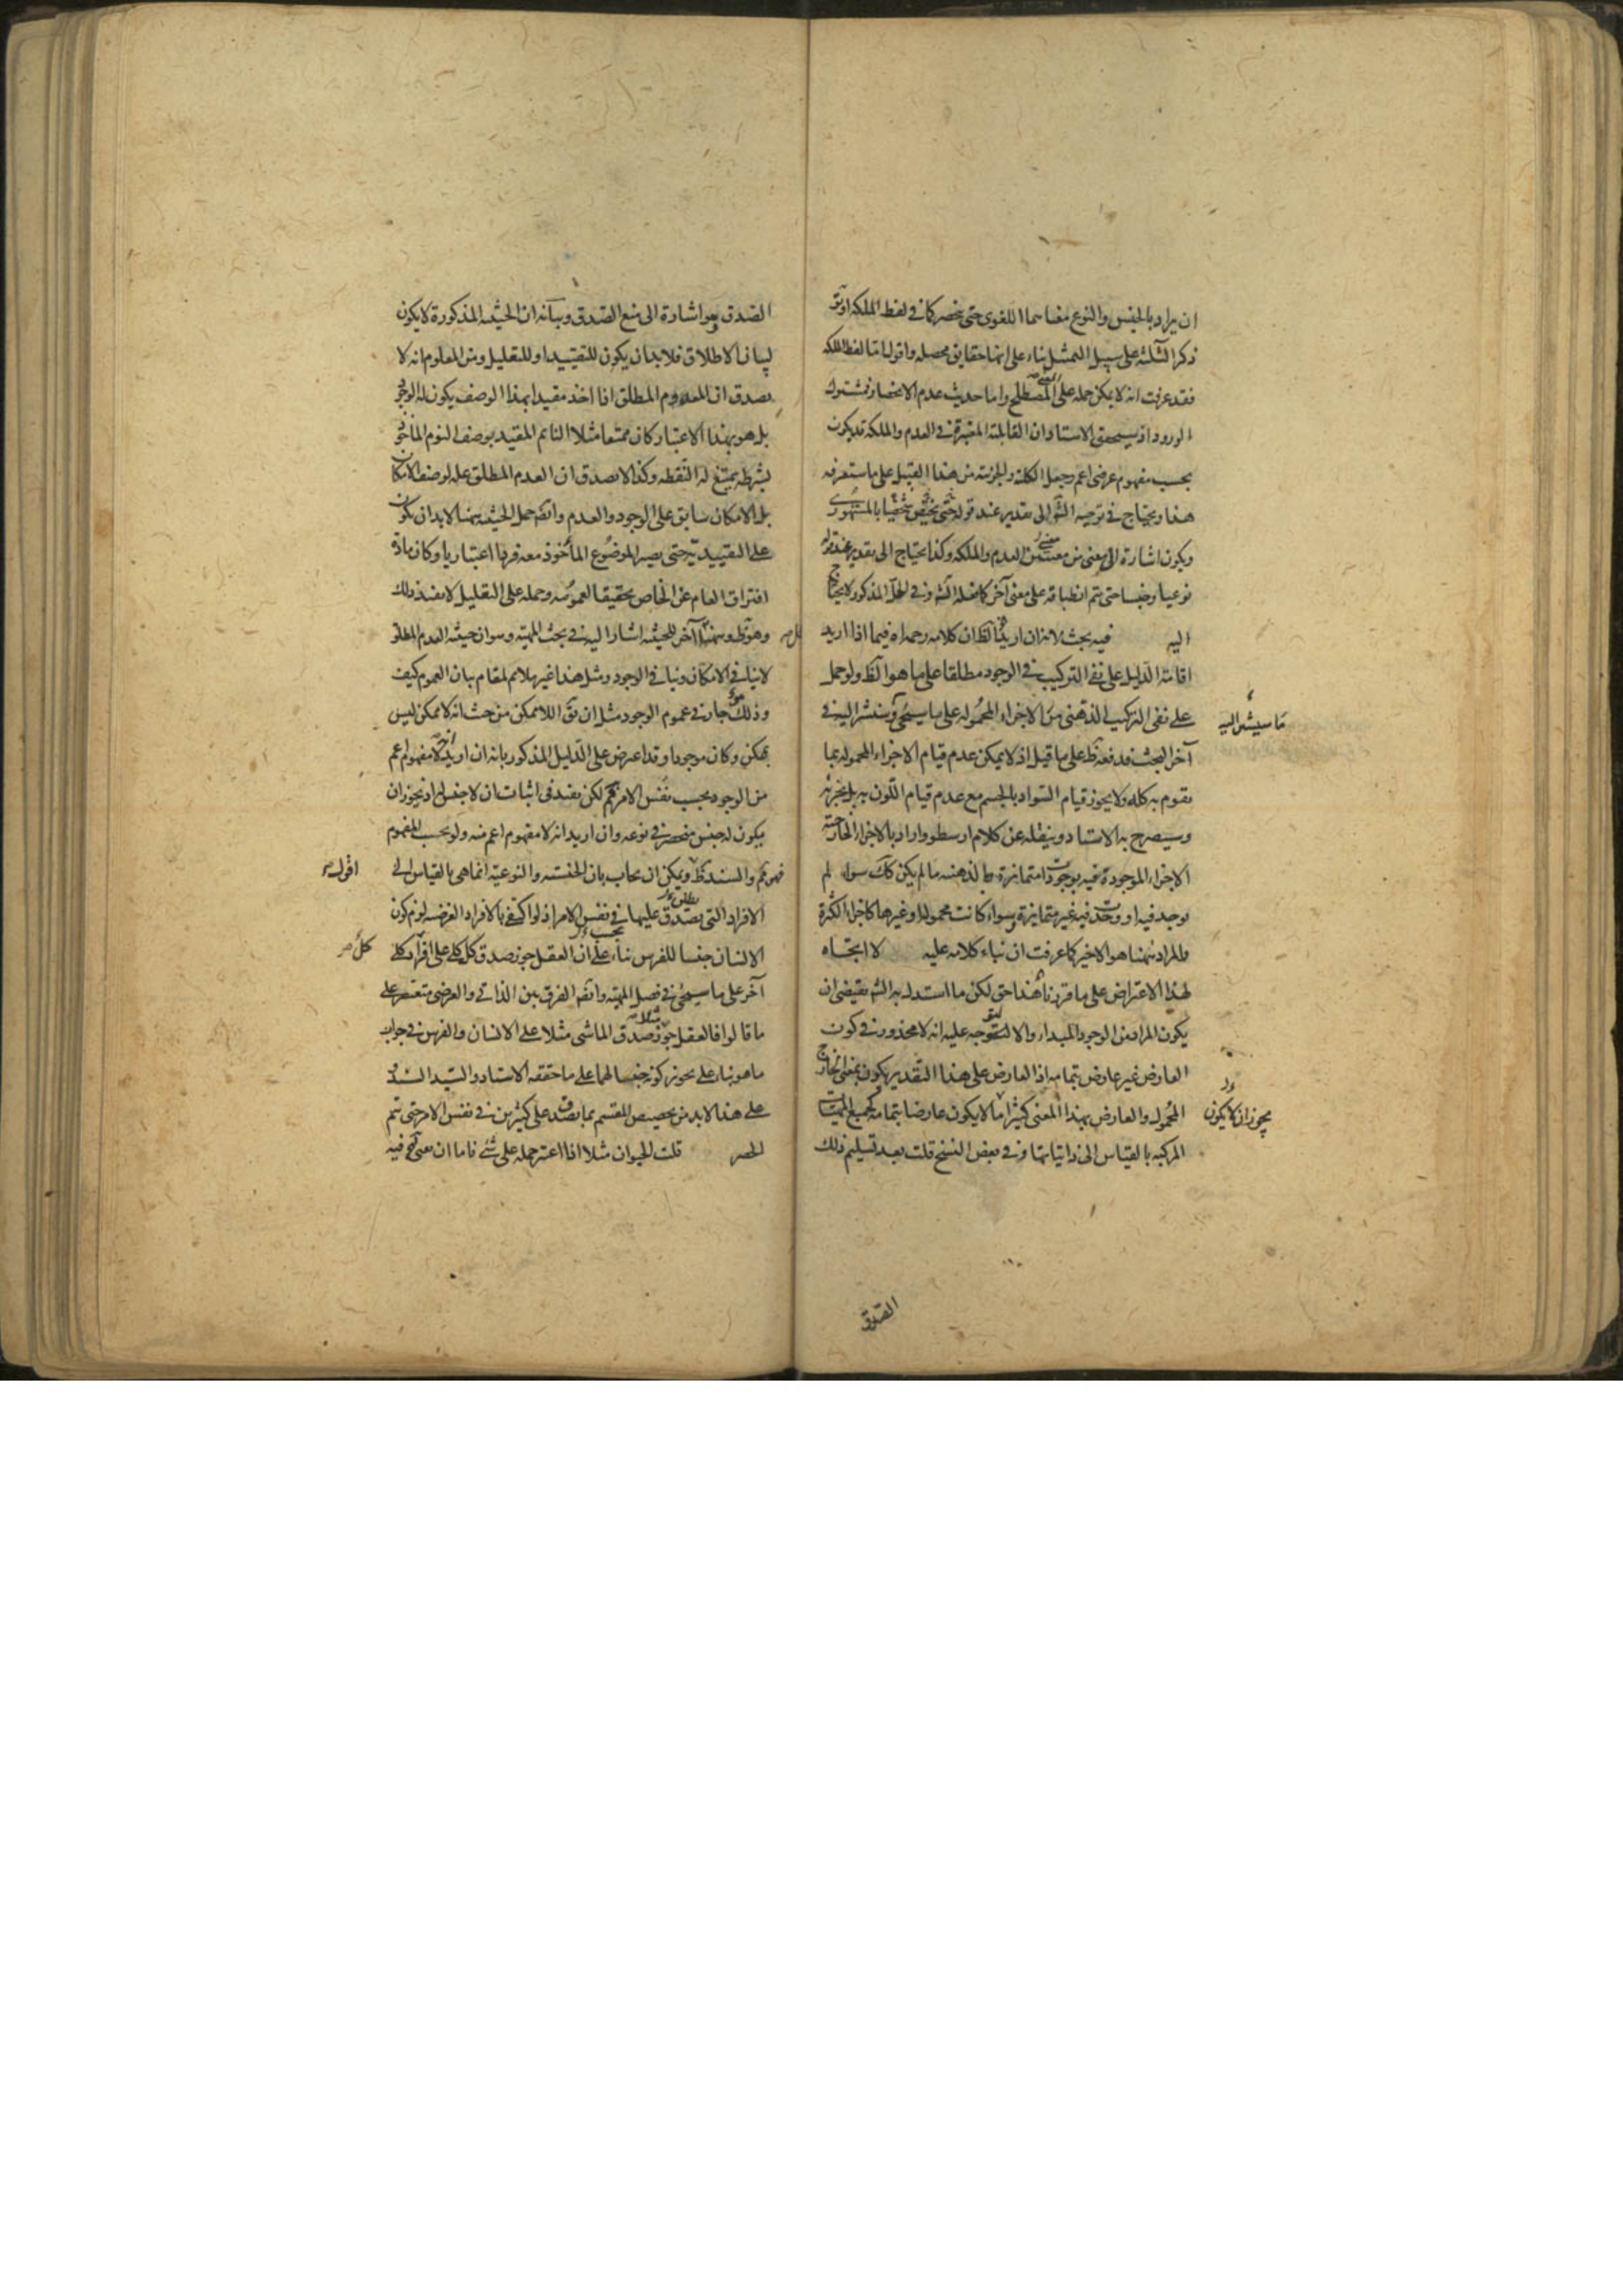 ان يراد بالجنس والنوع معناهما اللغوى حتى ينحصر كما فى لفظ الملكة او يق
ذكر الثلثة على سبيل التمثيل بناء على انها حقايق محصله واقول اما لفظ الملكه
فقد عرفت انه لا يمكن حمله على المعنى المصطلح واما حديث عدم الانحصار فمشترك
الورود اذ سيحقق الاستاد ان القابلية المعتبرة فى العدم والملكة قد يكون
بحسب مفهوم عرضى اعم وجعل الكلية والجزئية من هذا القبيل على ما ستعرفه
هذا ويحتاج فى توجيه الش الى تقدير عند قوله حتى يخص شخصيا بالمشهورى
ويكون اشارة الى معنى من معنيى العدم والملكه وكذا يحتاج الى تقدير عند قوله
نوعيا وجنسيا حتى يتم انطباقه على معنى آخر كما فعله الش وفى الحل المذكور لا يحتاج
اليه فيه بحث لانه ان اريد ان الظ ان كلامه رحمه اه فيما اذا اريد
اقامة الدليل على نفى التركيب فى الوجود مطلقا على ما هو الظ ولو حمل
على نفى التركيب الذهنى من الاجزاء المحموله على ما سيجئ وسنشير اليه فى
ما سيشير اليه
آخر البحث فدفعه ظ على ما قيل اذ لا يمكن عدم قيام الاجزاء المحموله بما
يقوم به كله ولا يجوز قيام السواد بالجسم مع عدم قيام اللون به بل بجزئه
وسيصرح به الاستاد وينقله عن كلام ارسطو واراد بالاجزاء الخارجية
الاجزاء الموجودة فيه بوجودات متمايزة وبالذهنيه ما لم يكن كك سواء لم
يوجد فيه او وجدت فيه غير متمايزة وسواء كانت محموله او غيرها كاجزاء الكرة
والمراد ههنا هو الاخير كما عرفت ان بناء كلامه عليه لا اتجاه
لهذا الاعتراض على ما قررنا هذا حق لكن ما استدل به الش يقتضى ان
يكون المراد من الوجود المبداء والا لتوجه عليه انه لا محذور فى كون
العارض غير عارض بتمامه اذ العارض على هذا التقدير يكون بمعنى الخارج
المحمول والعارض بهذا المعنى كثيرا ما لا يكون عارضا بتمامه لجميع المهيات
يجوز ان لا يكون
المركبه بالقياس الى ذاتياتها وفى بعض النسخ قلت بعد تسليم ذلك
الصدق
الصدق هو اشارة الى منع الصدق وبيانه ان الحيثيه المذكورة لا يكون
لبيان الاطلاق فلا بد ان يكون للتقييد او للتعليل ومن المعلوم انه لا
يصدق ان المعدوم المطلق اذا اخذ مقيدا بهذا الوصف يكون له الوجود
بل هو بهذا الاعتبار كان ممتنعا مثلا النائم المقيد بوصف النوم المأخوذ
بشرطه يمتنع له اليقظه وكذا لا يصدق ان العدم المطلق عله لوصف الامكان
بل الامكان سابق على الوجود والعدم وايضا حمل الحيثيه ههنا لا بد ان يكون
على التقييدية حتى يصير الموضوع المأخوذ معه فردا اعتباريا وكان مادة
افتراق العام عن الخاص تحقيقا لعمومه وحمله على التعليل لا يفيد ذلك
وهو ظ وههنا آخر للحيثيه اشار اليه فى بحث المهية وهو ان حيثيه العدم المطلق
لا ينافى الامكان وينافى الوجود ومثل هذا غير ملائم لمقام بيان العموم كيف
وذلك جار فى عموم الوجود مثل ان يق اللاممكن من حيث انه لا ممكن ليس
بممكن وكان موجودا وقد اعترض على الدليل المذكور بانه ان اريد انه لا مفهوم اعم
من الوجود بحسب نفس الامر فمم لكن يفيد فى اثبات ان لا جنس له اذ يجوز ان
يكون له جنس منحصر فى نوعه وان اريد انه لا مفهوم اعم منه ولو بحسب المفهوم
فهو مم والسند ظ ويمكن ان يجاب بان الجنسيه والنوعية انما هى بالقياس الى
اقول
الافراد التى يصدق عليها فى نفس الامر اذ لو اكتفى بالافراد الفرضيه لزم كون
الانسان جنسا للفرس بناء على ان العقل يجوز صدق كل كلى على افراد كلى
كل
آخر على ما سيجئ فى فصل المهية وايضا الفرق بين الذاتى والعرضى متعسر على
ما قالوا فالعقل يجوز صدق الماشى مثلا على الانسان والفرس فى جواب
ما هو بناء على تجويز كونه جنسا لهما على ما حققه الاستاد والسيد السند
على هذا لا بد من تخصيص المقسم بما يصدق على كثيرين فى نفس الامر حتى يتم
الحصر قلت الحيوان مثلا اذا اعتبر حمله على شئ فاما ان يعتبر فيه